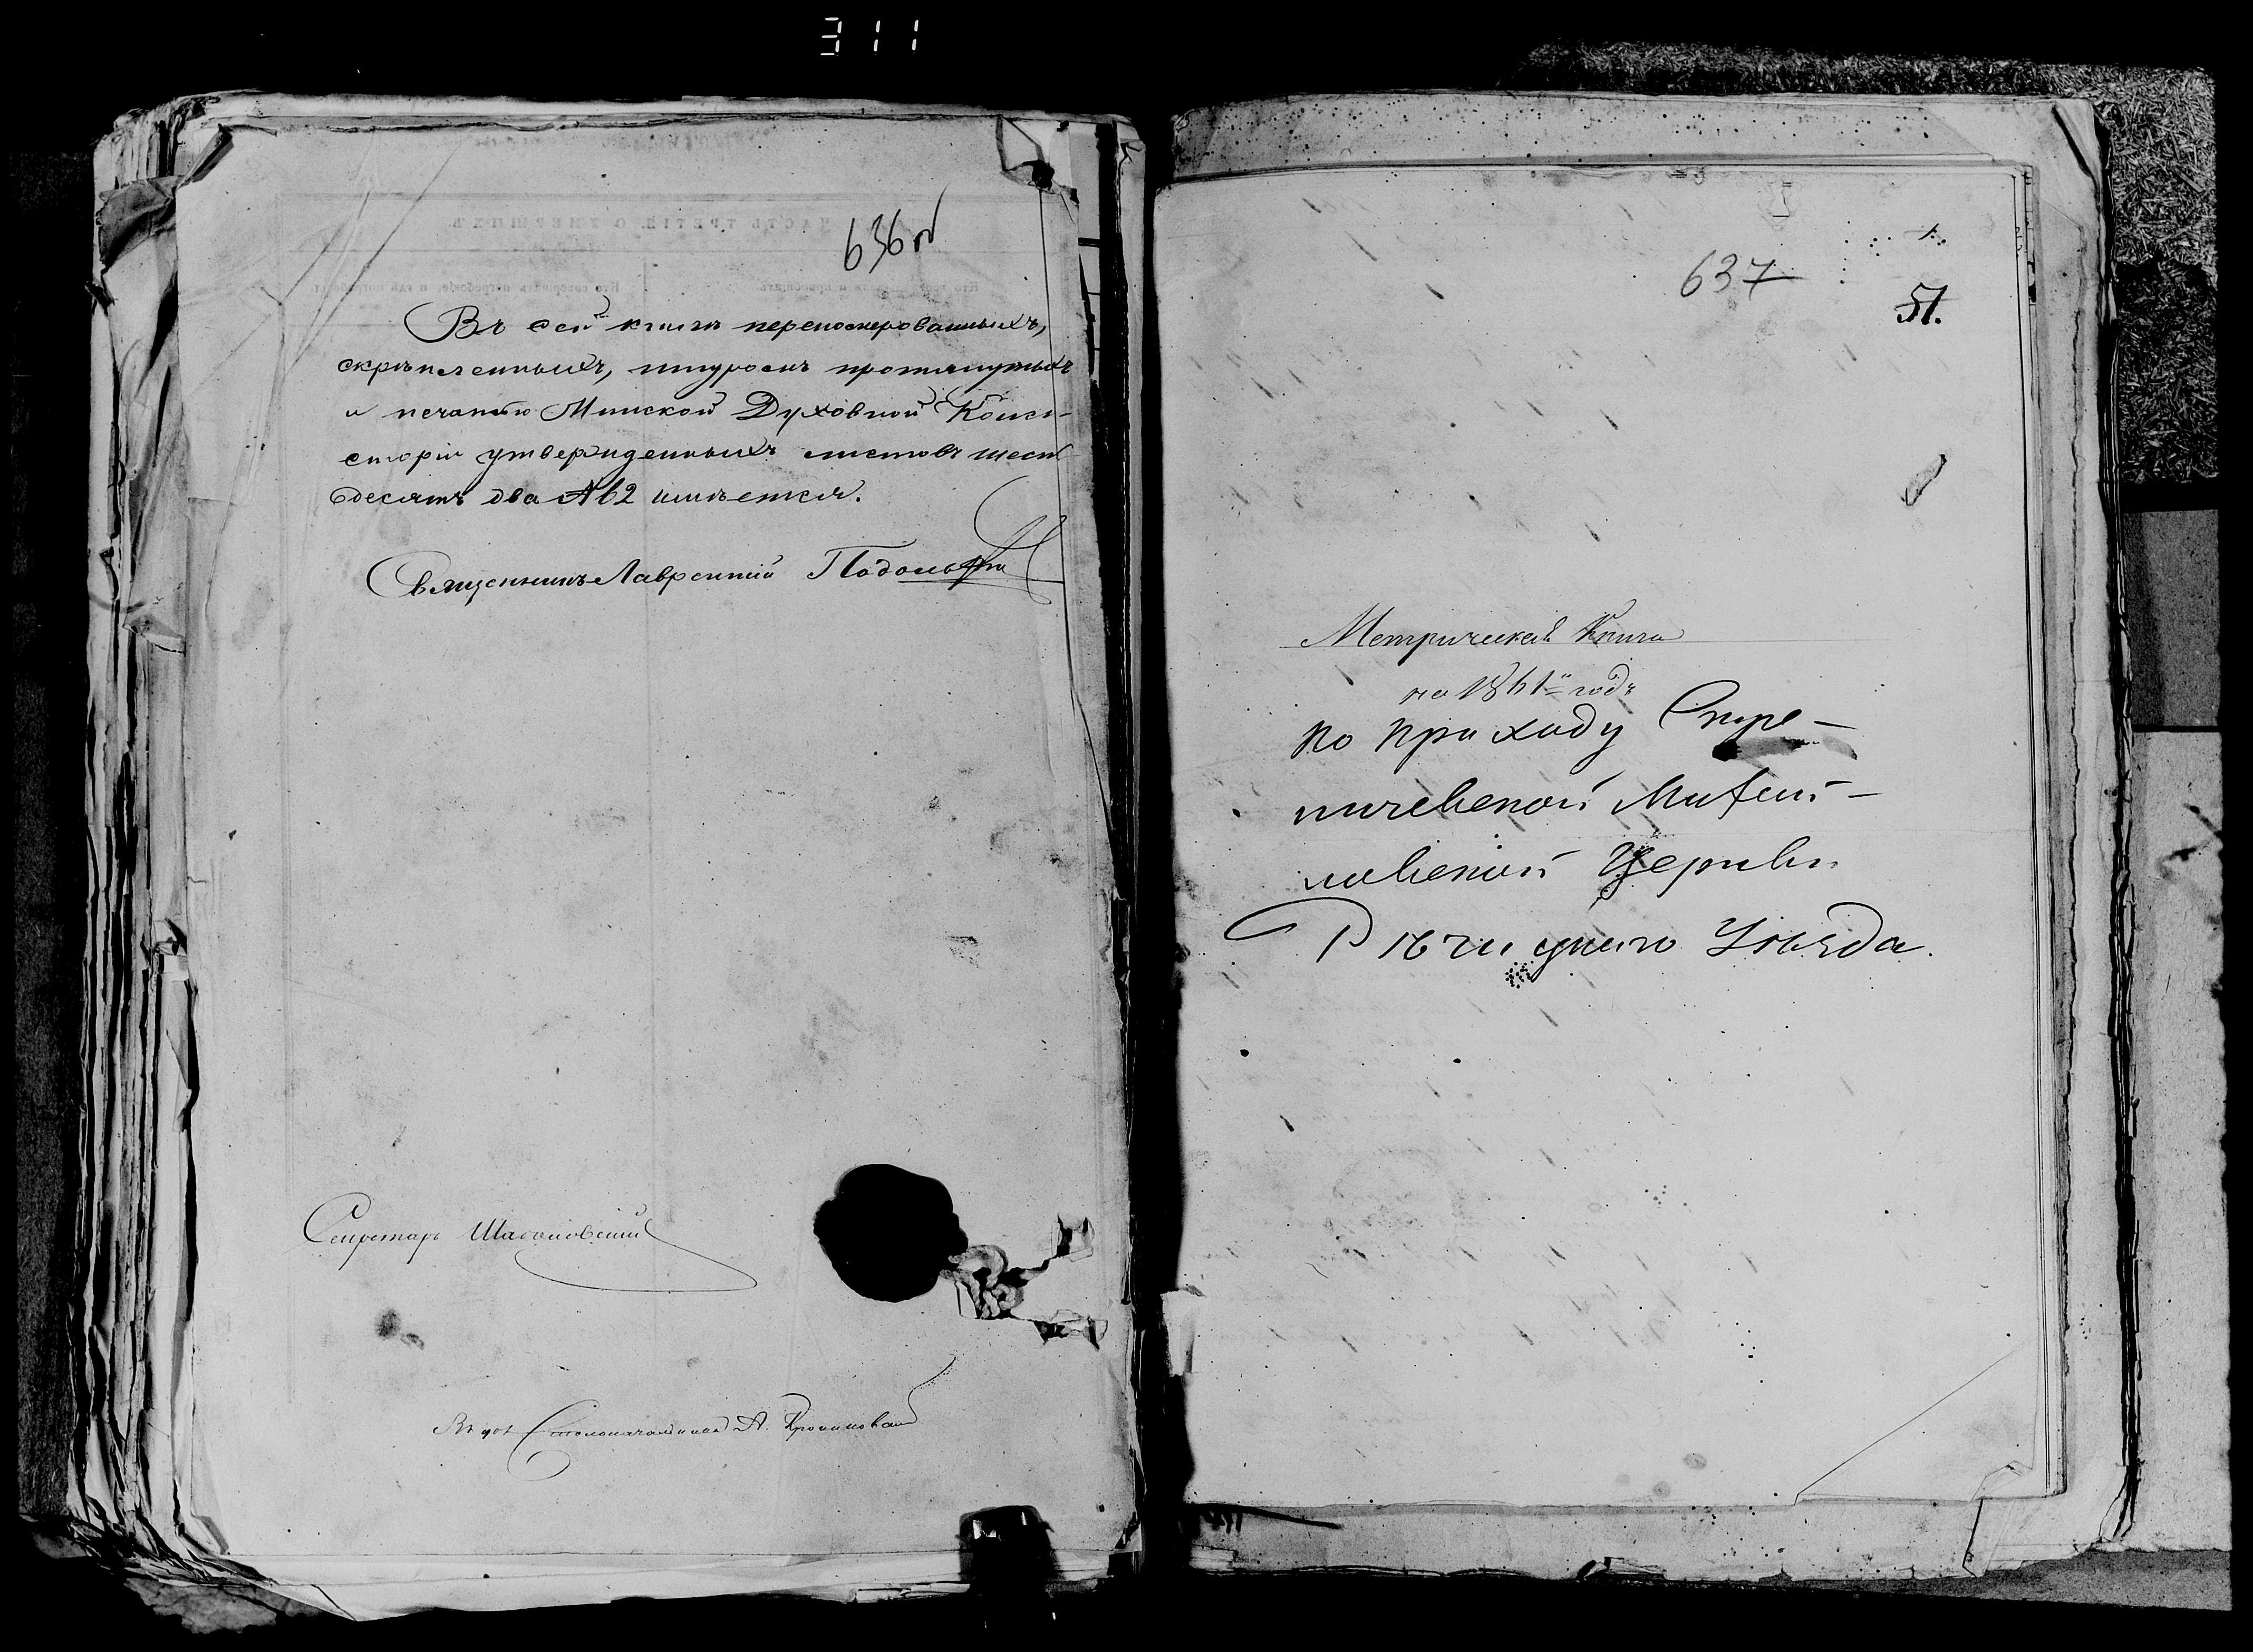 311
636 об
Въ сей книгѣ переномерованныхъ,
скрѣпленныхъ, шнуромъ протянутыхъ
и печатью Минской Духовной Конси-
сторіи утвержденныхъ листовъ шесть
десятъ два № 62 имѣется.
Священникъ Лаврентій
Секретарь
Столоначальника А.
637
1.
51.
Метрическая Книга
на 1861й годъ
по приходу Спре-
ничевской Михай-
ловской Церкви
Рѣчицкаго Уѣзда.